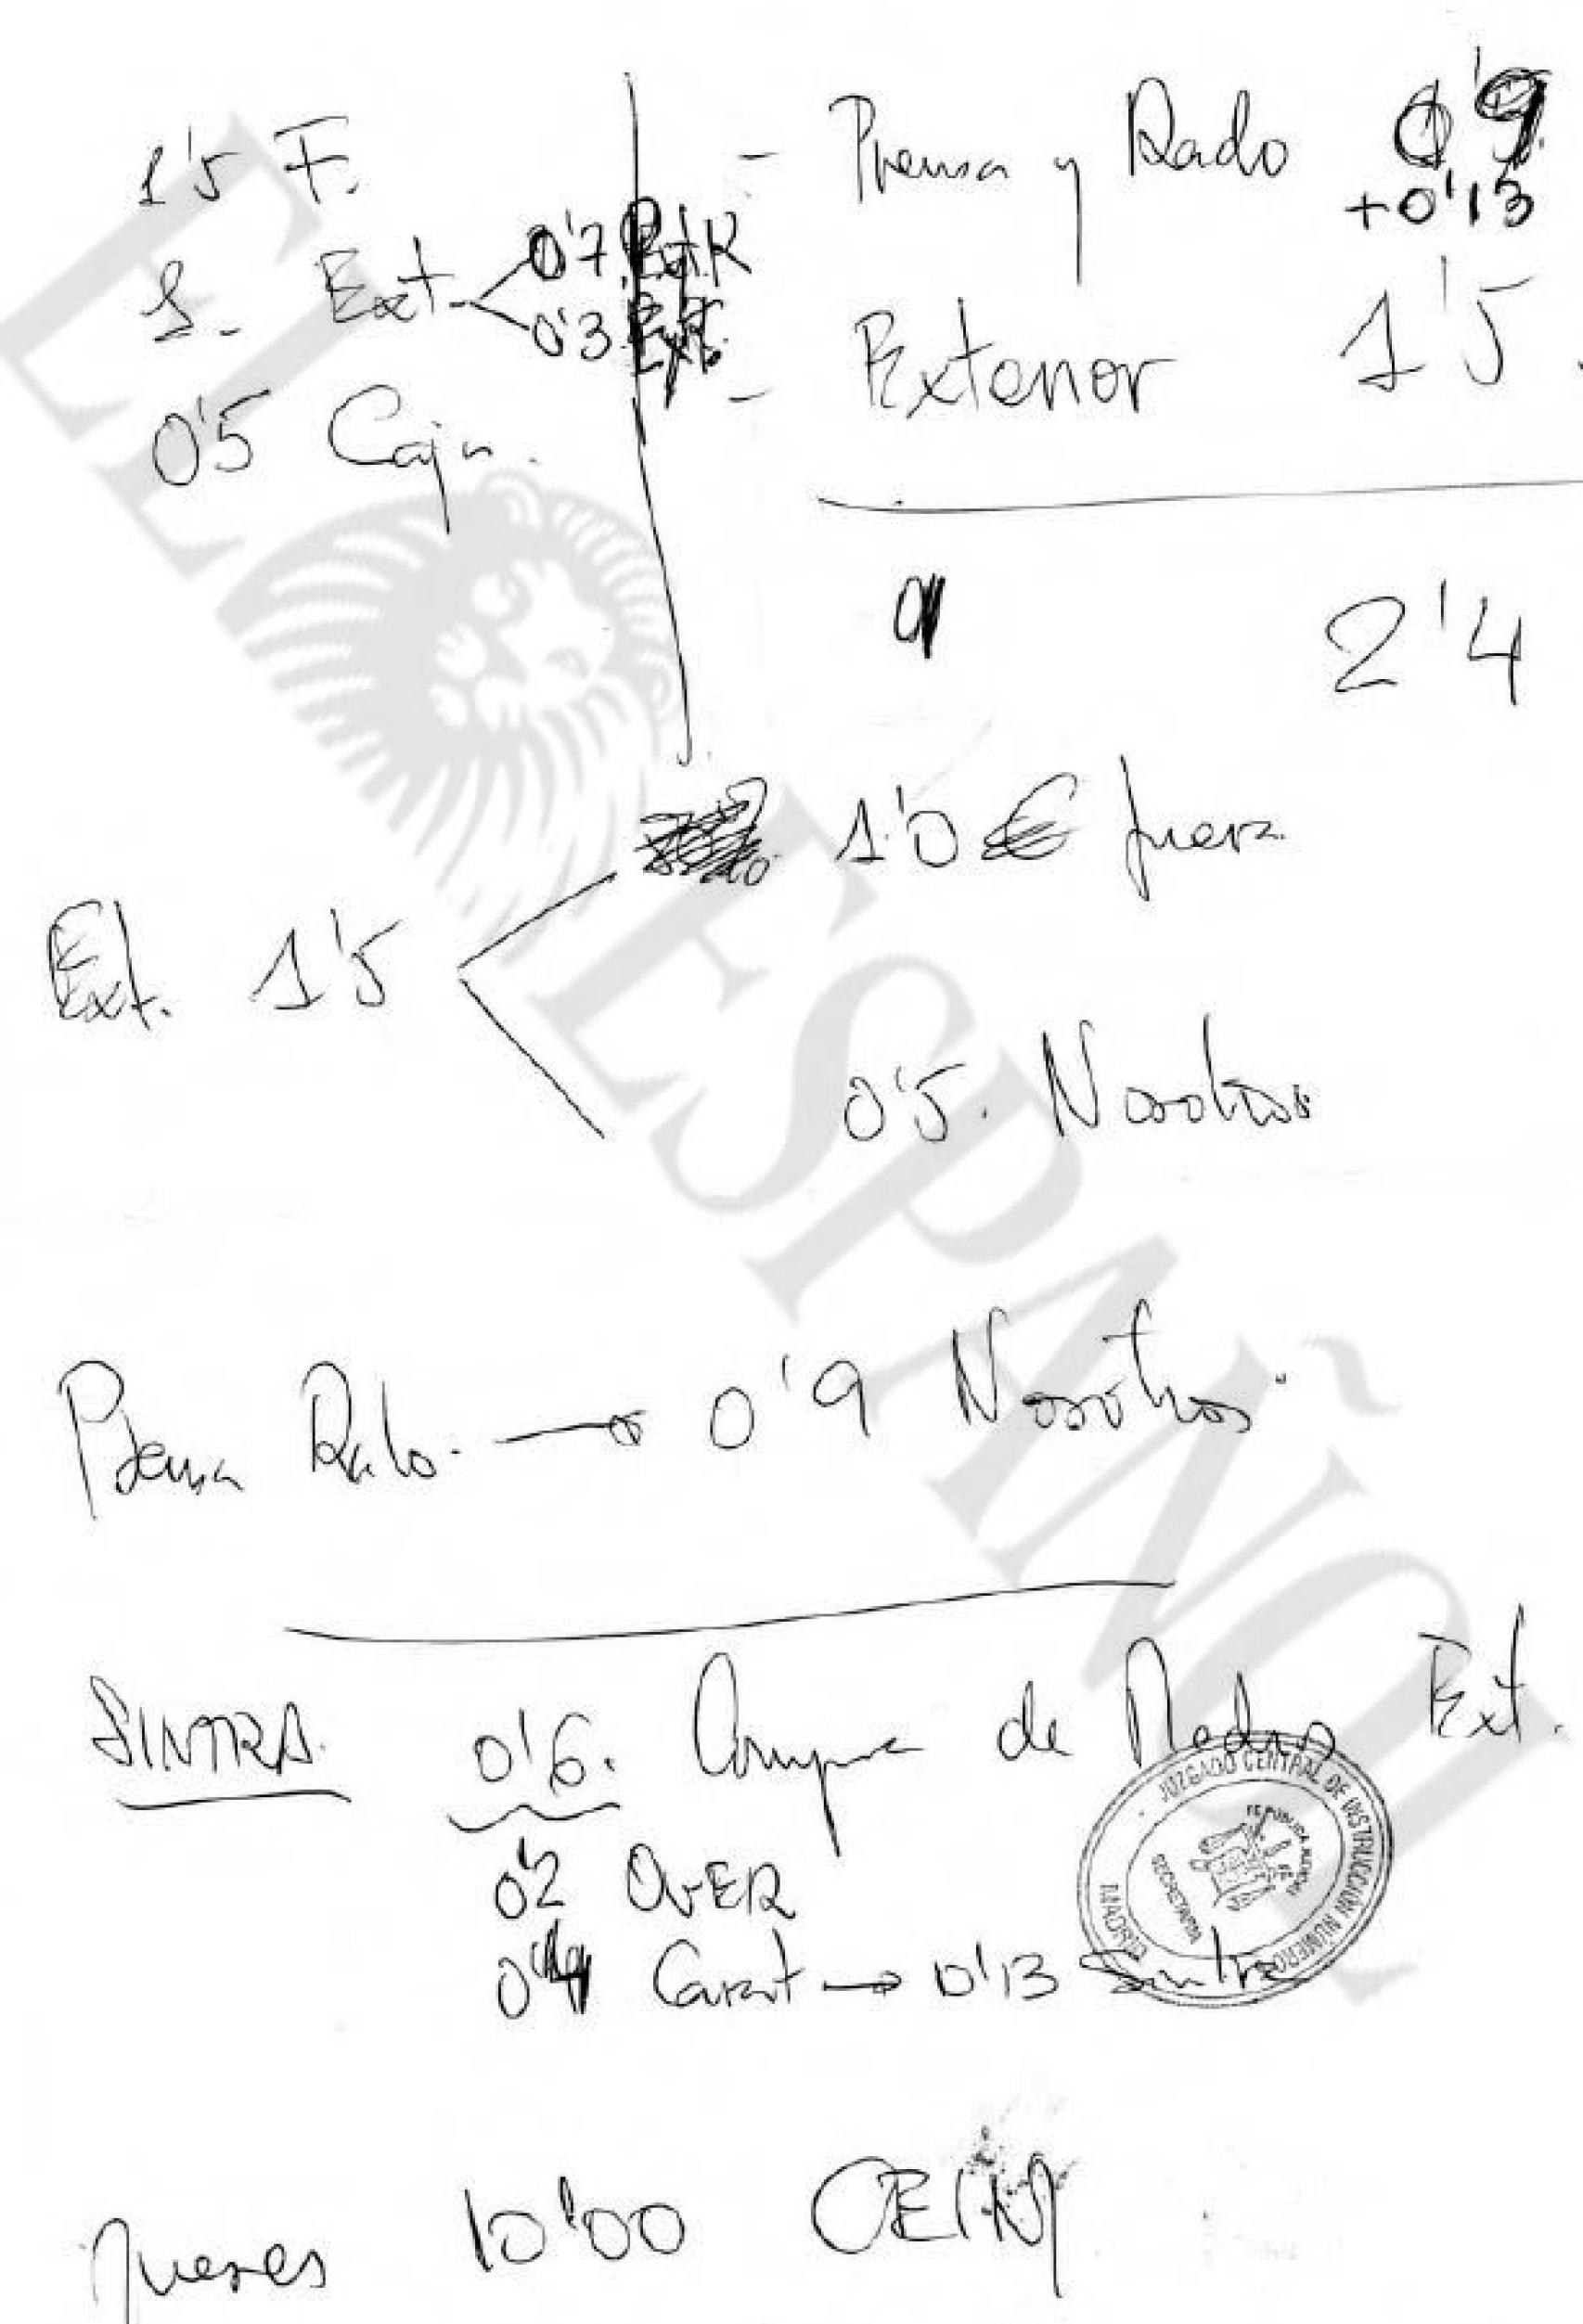 1'5 F.
1. Ext. 0'7 Ext.R
0'3 Ext.
0'5 Caja.
- Prensa y Radio 0'9
+0'13
- Exterior 1'5.
2'4
Ext. 1'5
1'0 € fuera
0'5. Nosotros
Prensa Radio. → 0'9 Nosotros.
SINTRA. 0'6. Compra de Medios Ext.
0'2 OVER
0'4 Carat → 0'13 Sintra
jueves 10'00
JUZGADO CENTRAL DE INSTRUCCIÓN NÚMERO
MADRID
SECRETARIA
FE PUBLICA JUDICIAL
EL ESPAÑOL